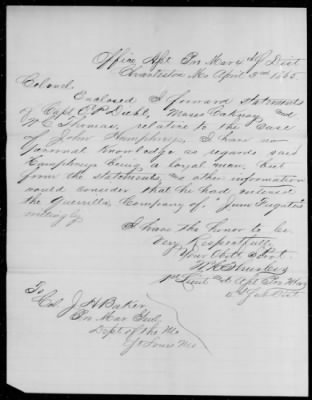 Office Apt Pro Mar 4 Sub Dist
Charleston Mo April 3rd 1865
Colonel.
Enclosed I forward statements
of Capt E P Diehl, Moses and
Thomas, relative to the case
of John Humphrey. I have no
personal knowledge as regards said
Humphrey being a loyal man, but
from the statements, and other information
would consider, that he had entered
the Guerrilla Company of "
willingly
I have the honor to be
Very Respectfully
Your Obdt Servt
1st Lieut and Apt Pro Mar
4th Sub Dist
To
Col J H Baker
Pro Mar Genl,
Dept of the Mo
St Louis Mo